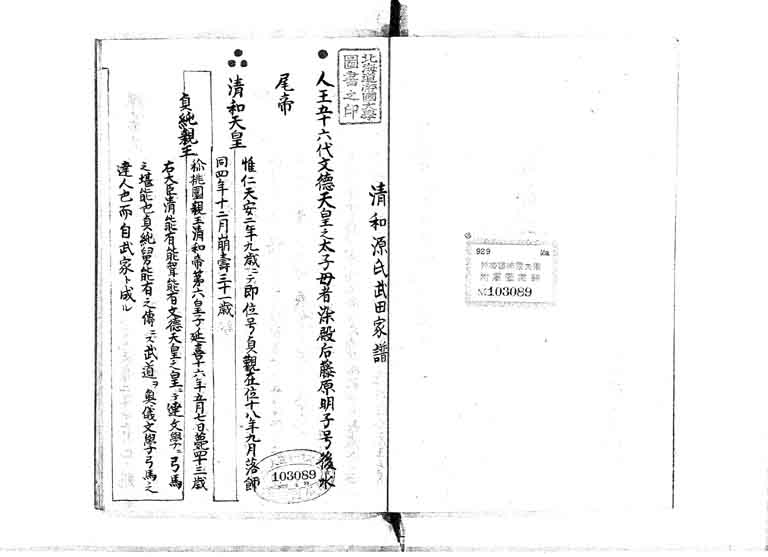 929
103089
清和源氏武田家譜
北海道帝國大學
圖書之印
人王五十六代文德天皇之太子母者染殿后藤原明子号後水
尾帝
清和天皇
惟仁天安二年九歳ニテ即位号貞觀在位十八年九月落餝
同四年十二月崩壽三十一歳
貞純親王
桃園親王清和帝第六皇子延喜十六年五月七日薨四十三歳
右大臣清能有能聟能有文德天皇之皇子達文學弓馬
之堪能也貞純舅能有之傳ニテ武道ヲ奥儀文學弓馬之
達人也而自武家ト成ル
103089